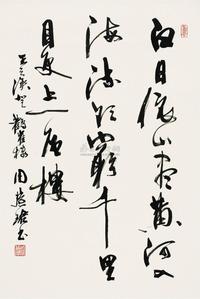 白日依山盡黄河入
海流欲窮千里
目更上一層樓
王之涣登鹳雀樓 周慧珺书